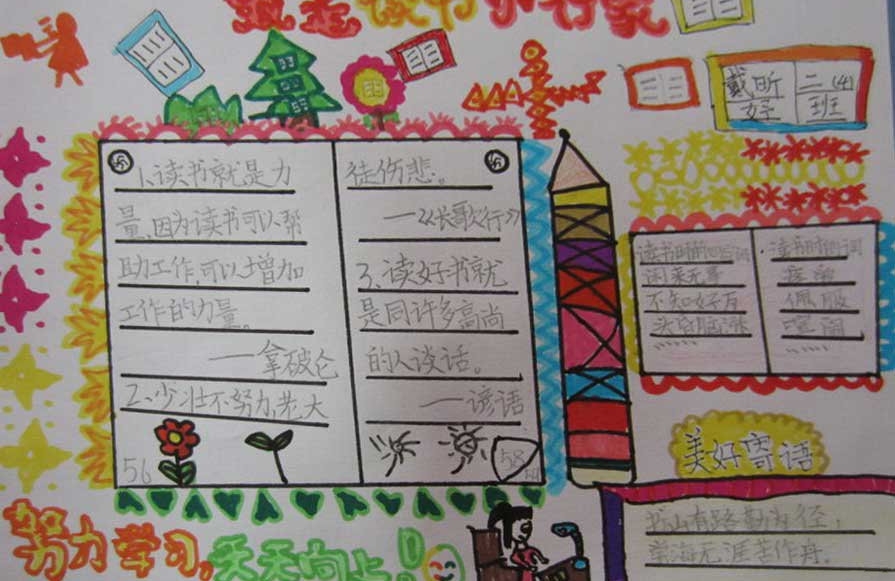 读书
戴昕妤
二(4)班
1、读书就是力
量,因为读书可以帮
助工作,可以增加
工作的力量。
——拿破仑
2、少壮不努力,老大
56
徒伤悲。
——《长歌行》
3、读好书就
是同许多高尚
的人谈话。
——谚语
58
闲来无事
头昏脑涨
疲惫
佩服
喧闹
美好寄语
书山有路勤为径,
学海无涯苦作舟。
努力学习,天天向上!